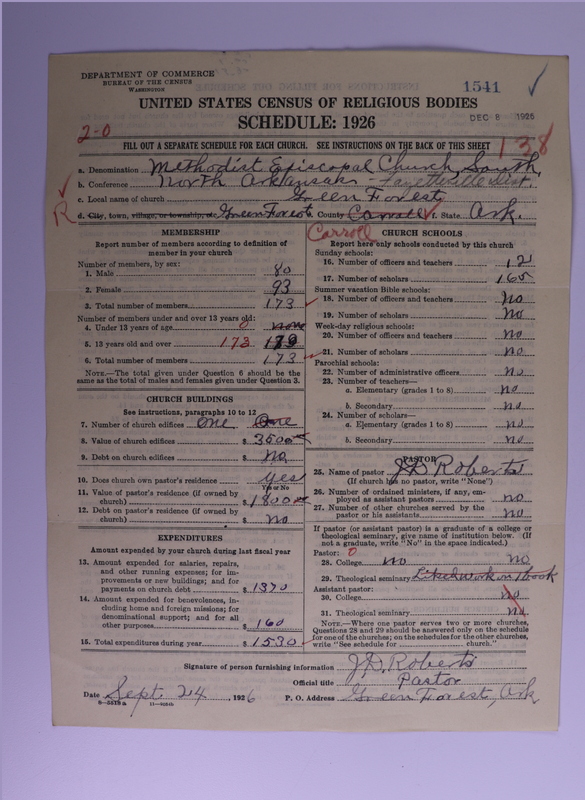 DEPARTMENT OF COMMERCE
BUREAU OF THE CENSUS
WASHINGTON
1541
DEC 8 1926
UNITED STATES CENSUS OF RELIGIOUS BODIES
SCHEDULE: 1926
2-0
138
FILL OUT A SEPARATE SCHEDULE FOR EACH CHURCH. SEE INSTRUCTIONS ON THE BACK OF THIS SHEET
a. Denomination Methodist Episcopal Church, South,
b. Conference North Arkansas - Fayetteville Dist.
c. Local name of church Green Forest
R
d. City, town, village, or township, etc. Green Forest e. County Carroll f. State Ark.
Carroll
MEMBERSHIP
Report number of members according to definition of
member in your church
Number of members, by sex:
1. Male 80
2. Female 93
3. Total number of members 173
Number of members under and over 13 years old:
4. Under 13 years of age 0 none
5. 13 years old and over 173 173
6. Total number of members 173
NOTE.—The total given under Question 6 should be the
same as the total of males and females given under Question 3.
CHURCH BUILDINGS
See instructions, paragraphs 10 to 12
7. Number of church edifices one One
8. Value of church edifices $ 3500
9. Debt on church edifices $ No
10. Does church own pastor's residence? yes
Yes or No
11. Value of pastor's residence (if owned by
church) $ 1800
12. Debt on pastor's residence (if owned by
church) $ no
EXPENDITURES
Amount expended by your church during last fiscal year
13. Amount expended for salaries, repairs,
and other running expenses; for im-
provements or new buildings; and for
payments on church debt $ 1370
14. Amount expended for benevolences, in-
cluding home and foreign missions; for
denominational support; and for all
other purposes $ 160
15. Total expenditures during year $ 1530
CHURCH SCHOOLS
Report here only schools conducted by this church
Sunday schools:
16. Number of officers and teachers 12
17. Number of scholars 165
Summer vacation Bible schools:
18. Number of officers and teachers no
19. Number of scholars no
Week-day religious schools:
20. Number of officers and teachers no
21. Number of scholars no
Parochial schools:
22. Number of administrative officers no
23. Number of teachers—
a. Elementary (grades 1 to 8) no
b. Secondary no
24. Number of scholars—
a. Elementary (grades 1 to 8) no
b. Secondary no
PASTOR
25. Name of pastor J D Roberts
(If church has no pastor, write "None")
26. Number of ordained ministers, if any, em-
ployed as assistant pastors no
27. Number of other churches served by the
pastor or his assistants no
If pastor (or assistant pastor) is a graduate of a college or
theological seminary, give name of institution below. (If
not a graduate, write "No" in the space indicated.)
Pastor: 0
28. College no no
29. Theological seminary work on 1 book
Assistant pastor:
30. College no
31. Theological seminary no
NOTE.—Where one pastor serves two or more churches,
Questions 28 and 29 should be answered only on the schedule
for one of the churches; on the schedules for the other churches,
write "See schedule for church."
Signature of person furnishing information J. D. Roberts
Official title Pastor
Date Sept 24, 1926 P. O. Address Green Forest, Ark
8-5518a